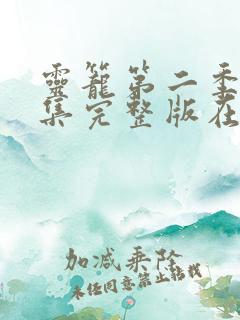 靈籠第二季
集完整版在
加减乘除
未经同意禁止转载